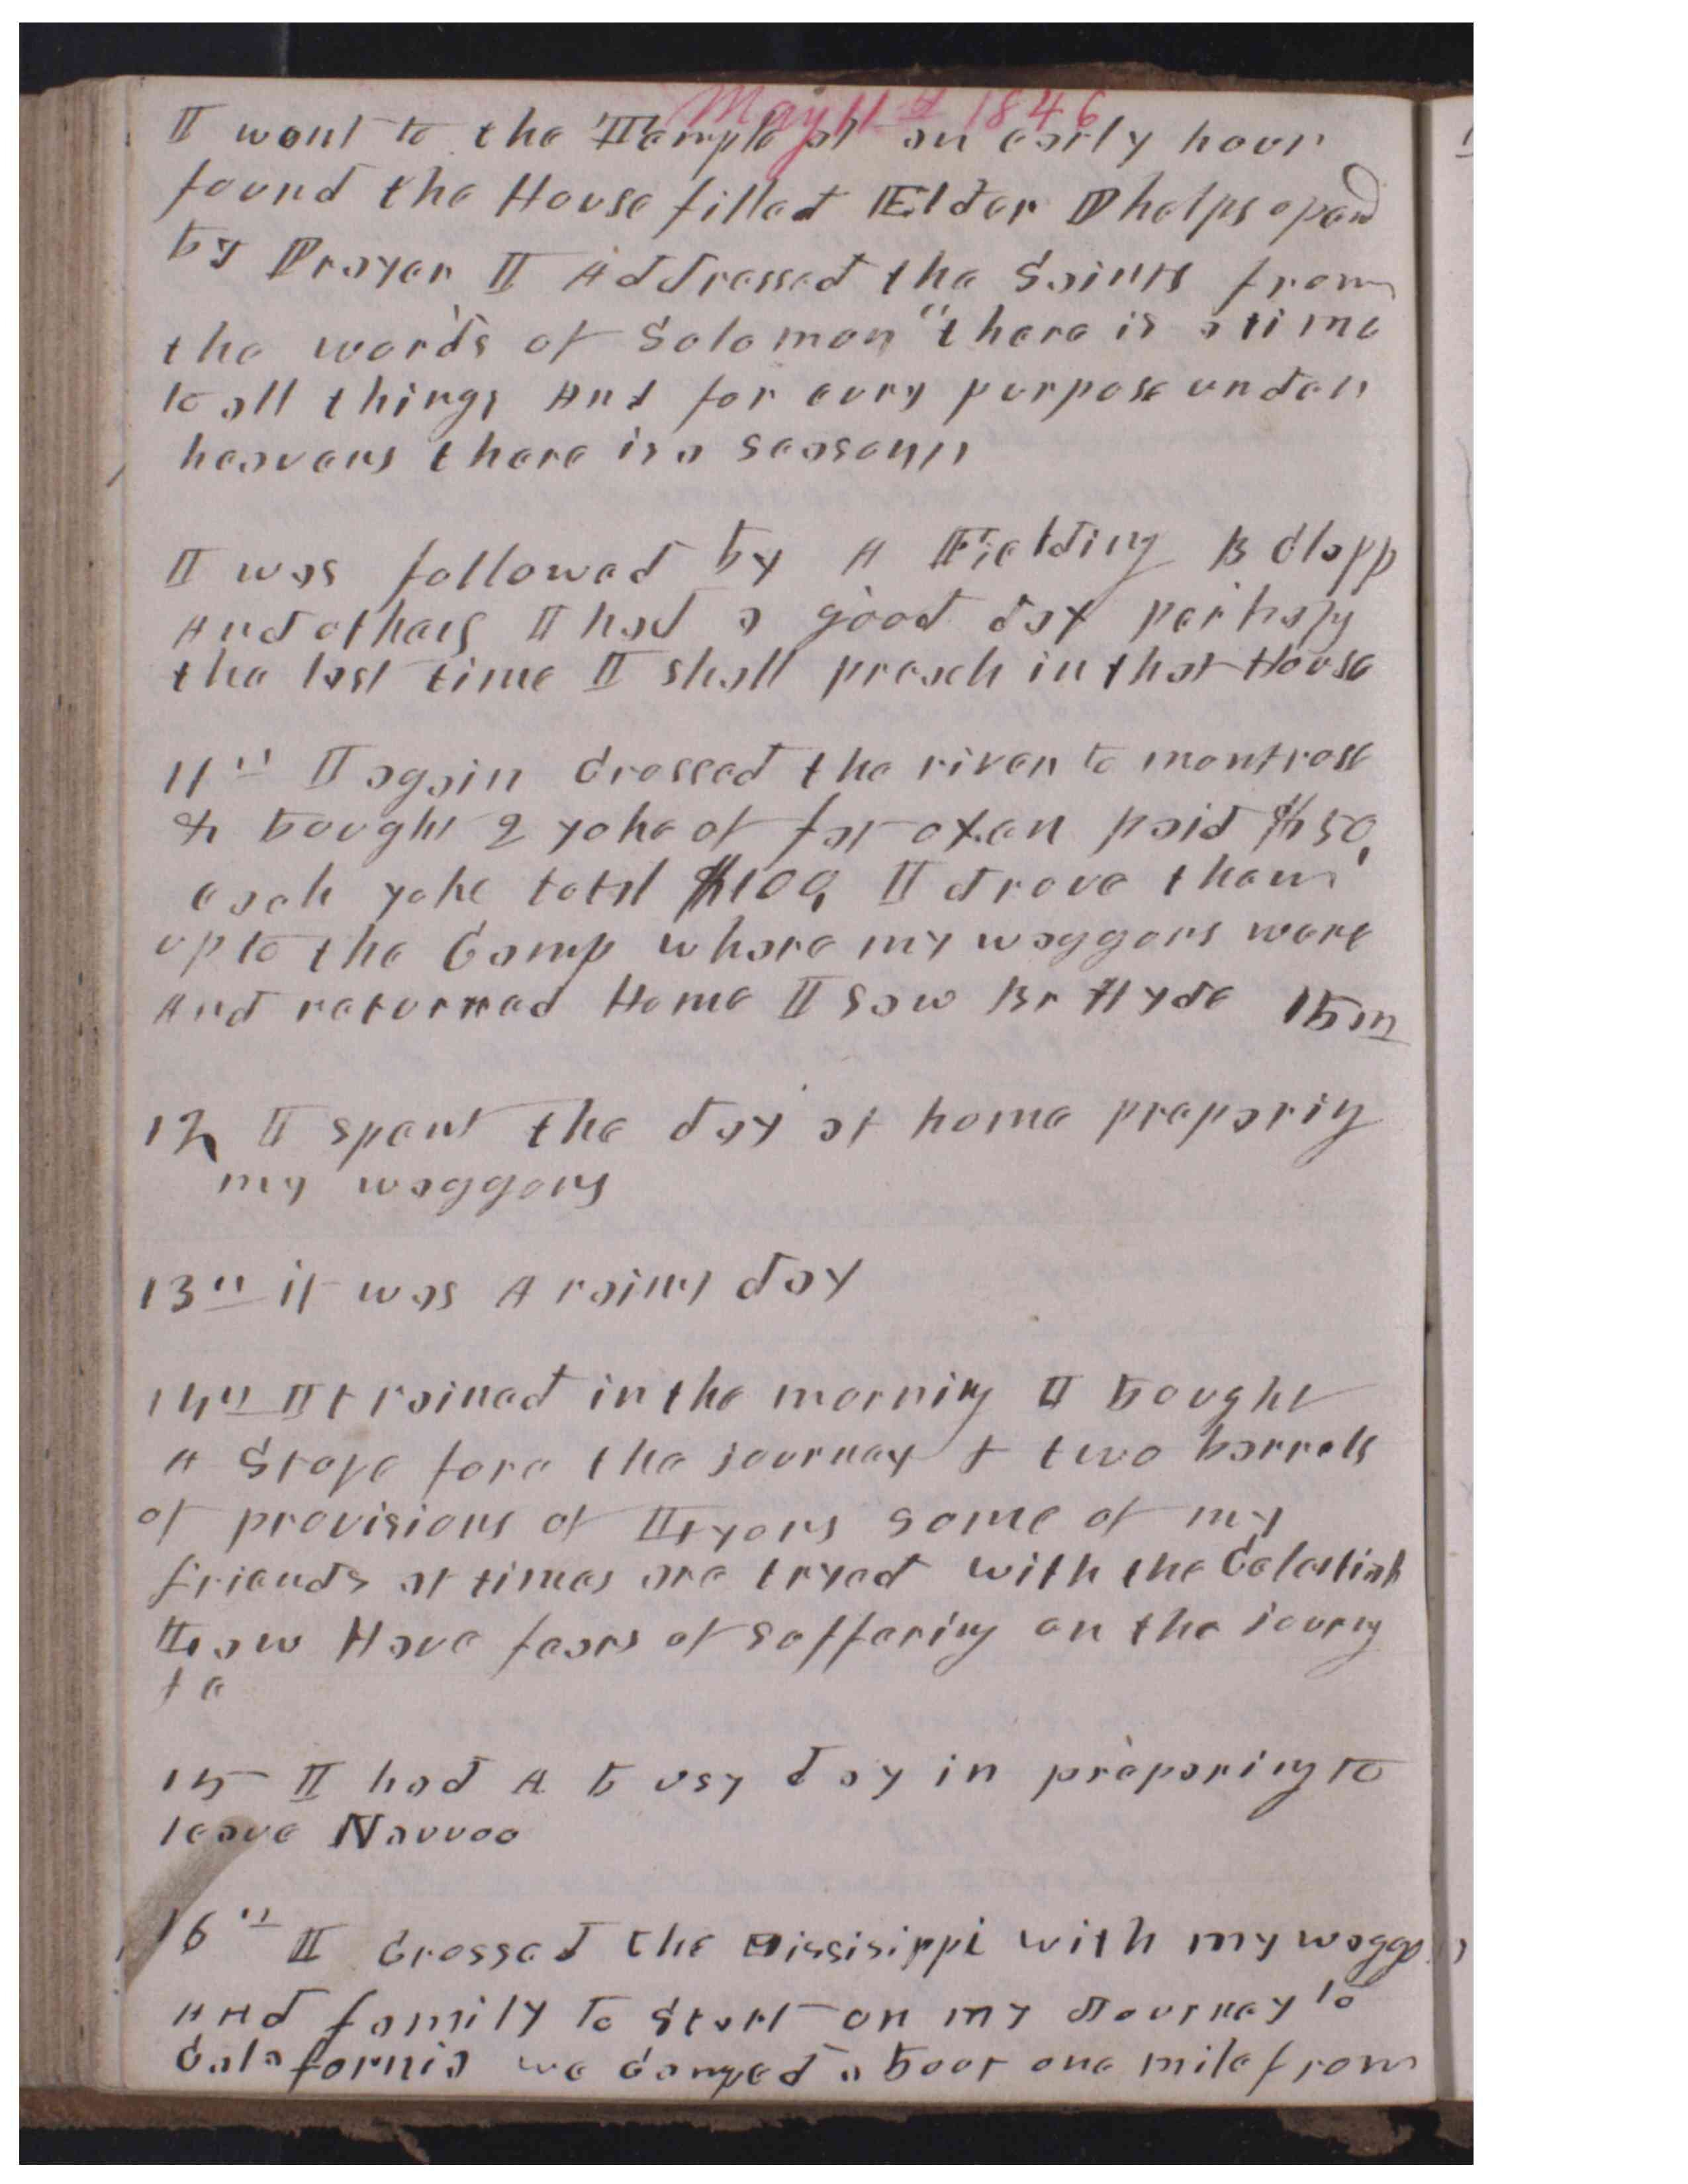 May 11th 1846
I went to the Temple at an early hour
found the House filled Elder Phelps opend
by Prayer I Addressed the Saints from
the words of Solomon "there is a time
to all things And for evry purpose under
heavens there is a season"
I was followed by A Fielding B Clapp
And others I had a good day perhaps
the last time I shall preach in that House
11" I again crossed the river to montrose
& bought 2 yoke of fat oxen paid $50,
each yoke total $100, I drove them
up to the Camp where my waggons were
And returned Home I saw Br Hyde 15m
12 I spent the day at home preparing
my waggons
13" it was A rainy day
14" It rained in the morning I bought
A Stove fore the journey & two barrels
of provisions of some of my
friends at times are tryed with the Celestial
Law Have fears of suffering on the journy
&c
15 I had A busy day in preparing to
leave Nauvoo
16" I Crossed the Missisippi with my waggons
And family to start on my Journey to
Calafornia we camped about one mile from